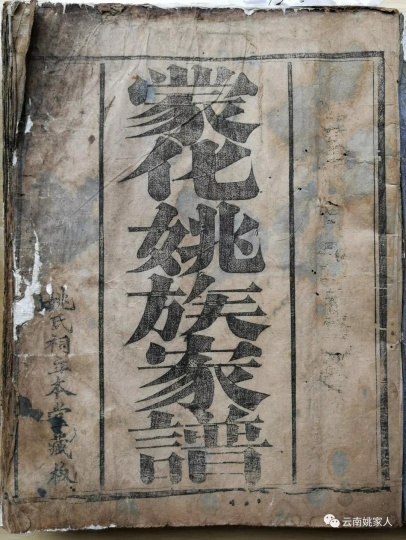 蒙化姚族家譜
姚氏祠立本堂藏板
云南姚家人